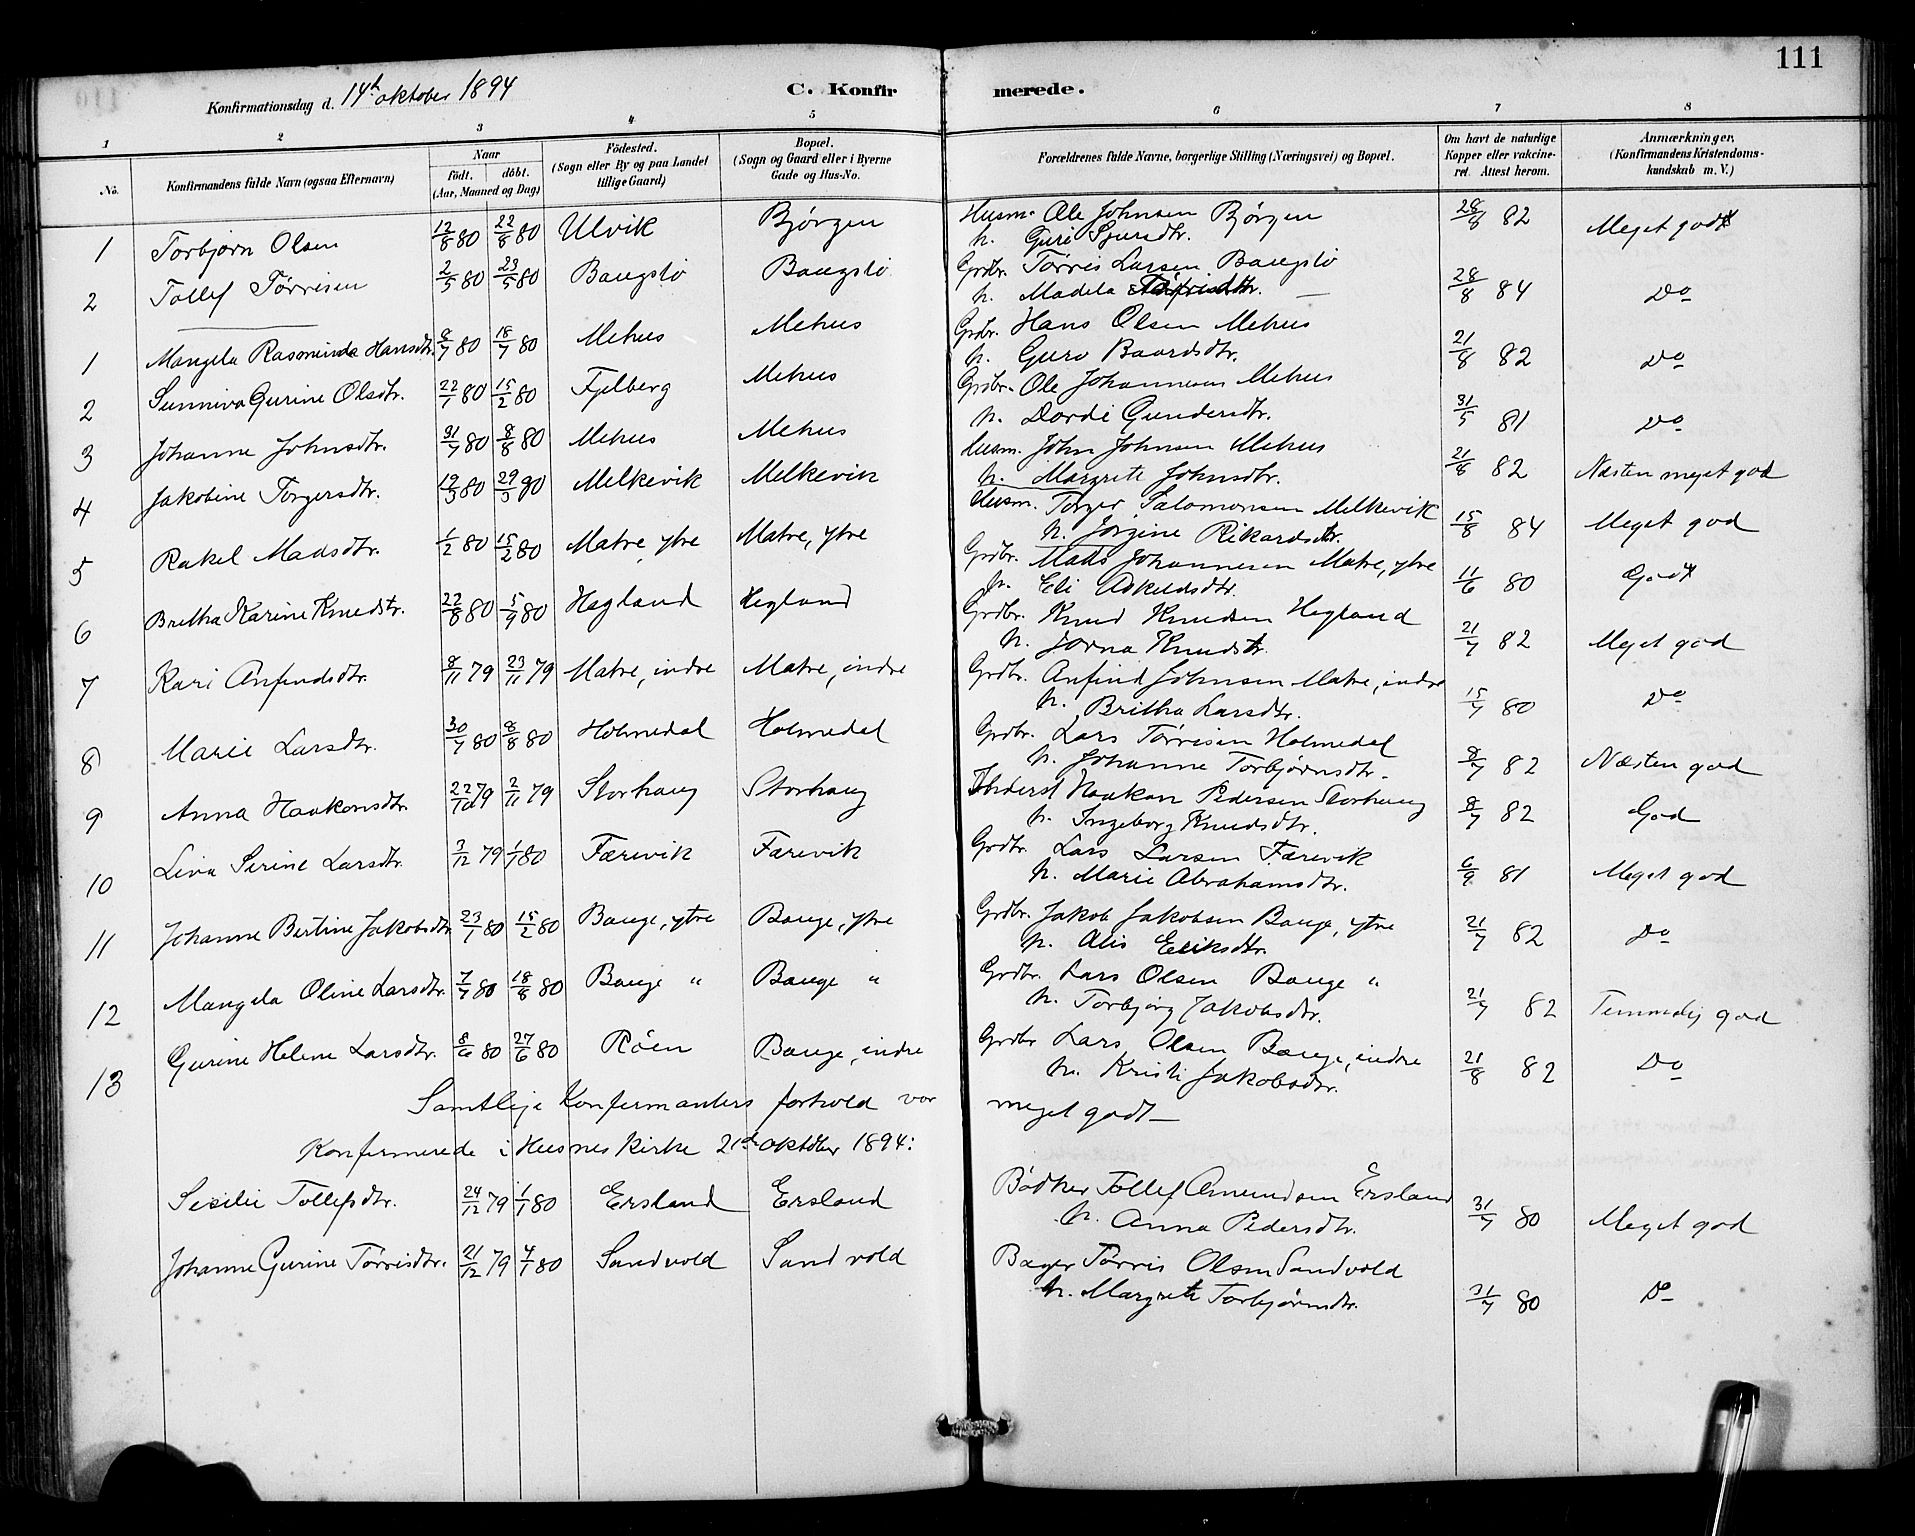 111
Konfirmationsdag d. 14de oktober 1894 C. Konfirmerede.
1 2 3 4 5 6 7 8
No. Konfirmandens fulde Navn (ogsaa Efternavn) Naar født. døbt. (Aar, Maaned og Dag) Fødested. (Sogn eller By og paa Landet tillige Gaard) Bopæl. (Sogn og Gaard eller i Byerne Gade og Hus-No. Forældrenes fulde Navne, borgerlige Stilling (Næringsvei) og Bopæl. Om havt de naturlige Kopper eller vakcineret. Attest herom. Anmærkninger, (Konfirmandens Kristendomskundskab m. V.)
1 Torbjørn Olsen 12/8 80 22/8 80 Ulvik Bjørgen Husm. Ole Johnsen Bjørgen 28/8 82 Meget godt
h. Guri Sjursdtr.
2 Tollef Tørrisen 2/5 80 23/5 80 Baugstø Baugstø Grdbr. Tørris Larsen Baugstø 28/8 84 Do
h. Madela
1 Mangela Rasminda Hansdtr. 8/7 80 18/7 80 Mehus Mehus Grdbr. Hans Olsen Mehus 21/8 82 Do
h. Guro Baardsdtr.
2 Sunniva Gurine Olsdtr. 22/1 80 15/2 80 Fjelberg Mehus Grdbr. Ole Johannesen Mehus 31/5 81 Do
h. Dorde Gundersdtr.
3 Johanne Johnsdtr. 31/7 80 8/8 80 Mehus Mehus Husm. John Johnsen Mehus 21/8 82 Næsten meget god
h. Margrete Johnsdtr.
4 Jakobine Torgersdtr. 12/3 80 29/3 80 Melkevik Melkevik Husm. Torger Salomonsen Melkevik 15/8 84 Meget god
h. Jorgine Rikardsdtr.
5 Rakel Madsdtr. 1/2 80 15/2 80 Matre, ytre Matre, ytre Grdbr. Mads Johannesen Matre, ytre 11/6 80 Godt
h. Eli Askeldsdtr.
6 Britha Karine Knudstr. 22/8 80 5/9 80 Hegland Hegland Grdbr. Knud Knudsen Hegland 21/7 82 Meget god
h. Jorna Knudstr.
7 Kari Anfindsdtr. 8/11 79 23/11 79 Matre, indre Matre, indre Grdbr. Anfind Johnsen Matre, indre 15/7 80 Do
h. Britha Larsdtr.
8 Marie Larsdtr. 30/7 80 8/8 80 Holmedal Holmedal Grdbr. Lars Tørrisen Holmedal 8/7 82 Næsten god
h. Johanne Torbjørnsdtr.
9 Anna Haakonsdtr. 22/10 79 2/11 79 Storhaug Storhaug Inderst Haakon Pedersen Storhaug 8/7 82 God
h. Ingeborg Knudsdtr.
10 Liva Serine Larsdtr. 3/12 79 1/1 80 Færevik Færevik Grdbr. Lars Larsen Færevik 6/9 81 Meget god
h. Marie Abrahamsdtr.
11 Johanne Bertine Jakobsdtr. 23/1 80 15/2 80 Bauge, ytre Bauge, ytre Grdbr. Jakob Jakobsen Bauge, ytre 21/7 82 Do
h. Alis Eriksdtr.
12 Mangela Oline Larsdtr. 7/7 80 18/8 80 Bauge " Bauge " Grdbr. Lars Olsen Bauge " 21/7 82 Temmelig god
h. Torbjørg Jakobsdtr.
13 Gurine Helene Larsdtr. 8/6 80 27/6 80 Røen Bauge, indre Grdbr Lars Olsen Bauge, indre 21/8 82 Do
h. Kristi Jakobsdtr.
Samtlige Konfirmanters forhold var meget godt
Konfirmerede i Husnes Kirke 21de oktober 1894:
Sesilie Tollefsdtr. 24/12 79 1/1 80 Ersland Ersland Bødker Tollef Amundsen Ersland 31/7 80 Meget god
h. Anna Pedersdtr.
Johanne Gurine Tørrisdtr. 21/12 79 4/1 80 Sandvold Sandvold Bager Tørris Olsen Sandvold 31/7 80 Do
h. Margrete Torbjørnsdtr.